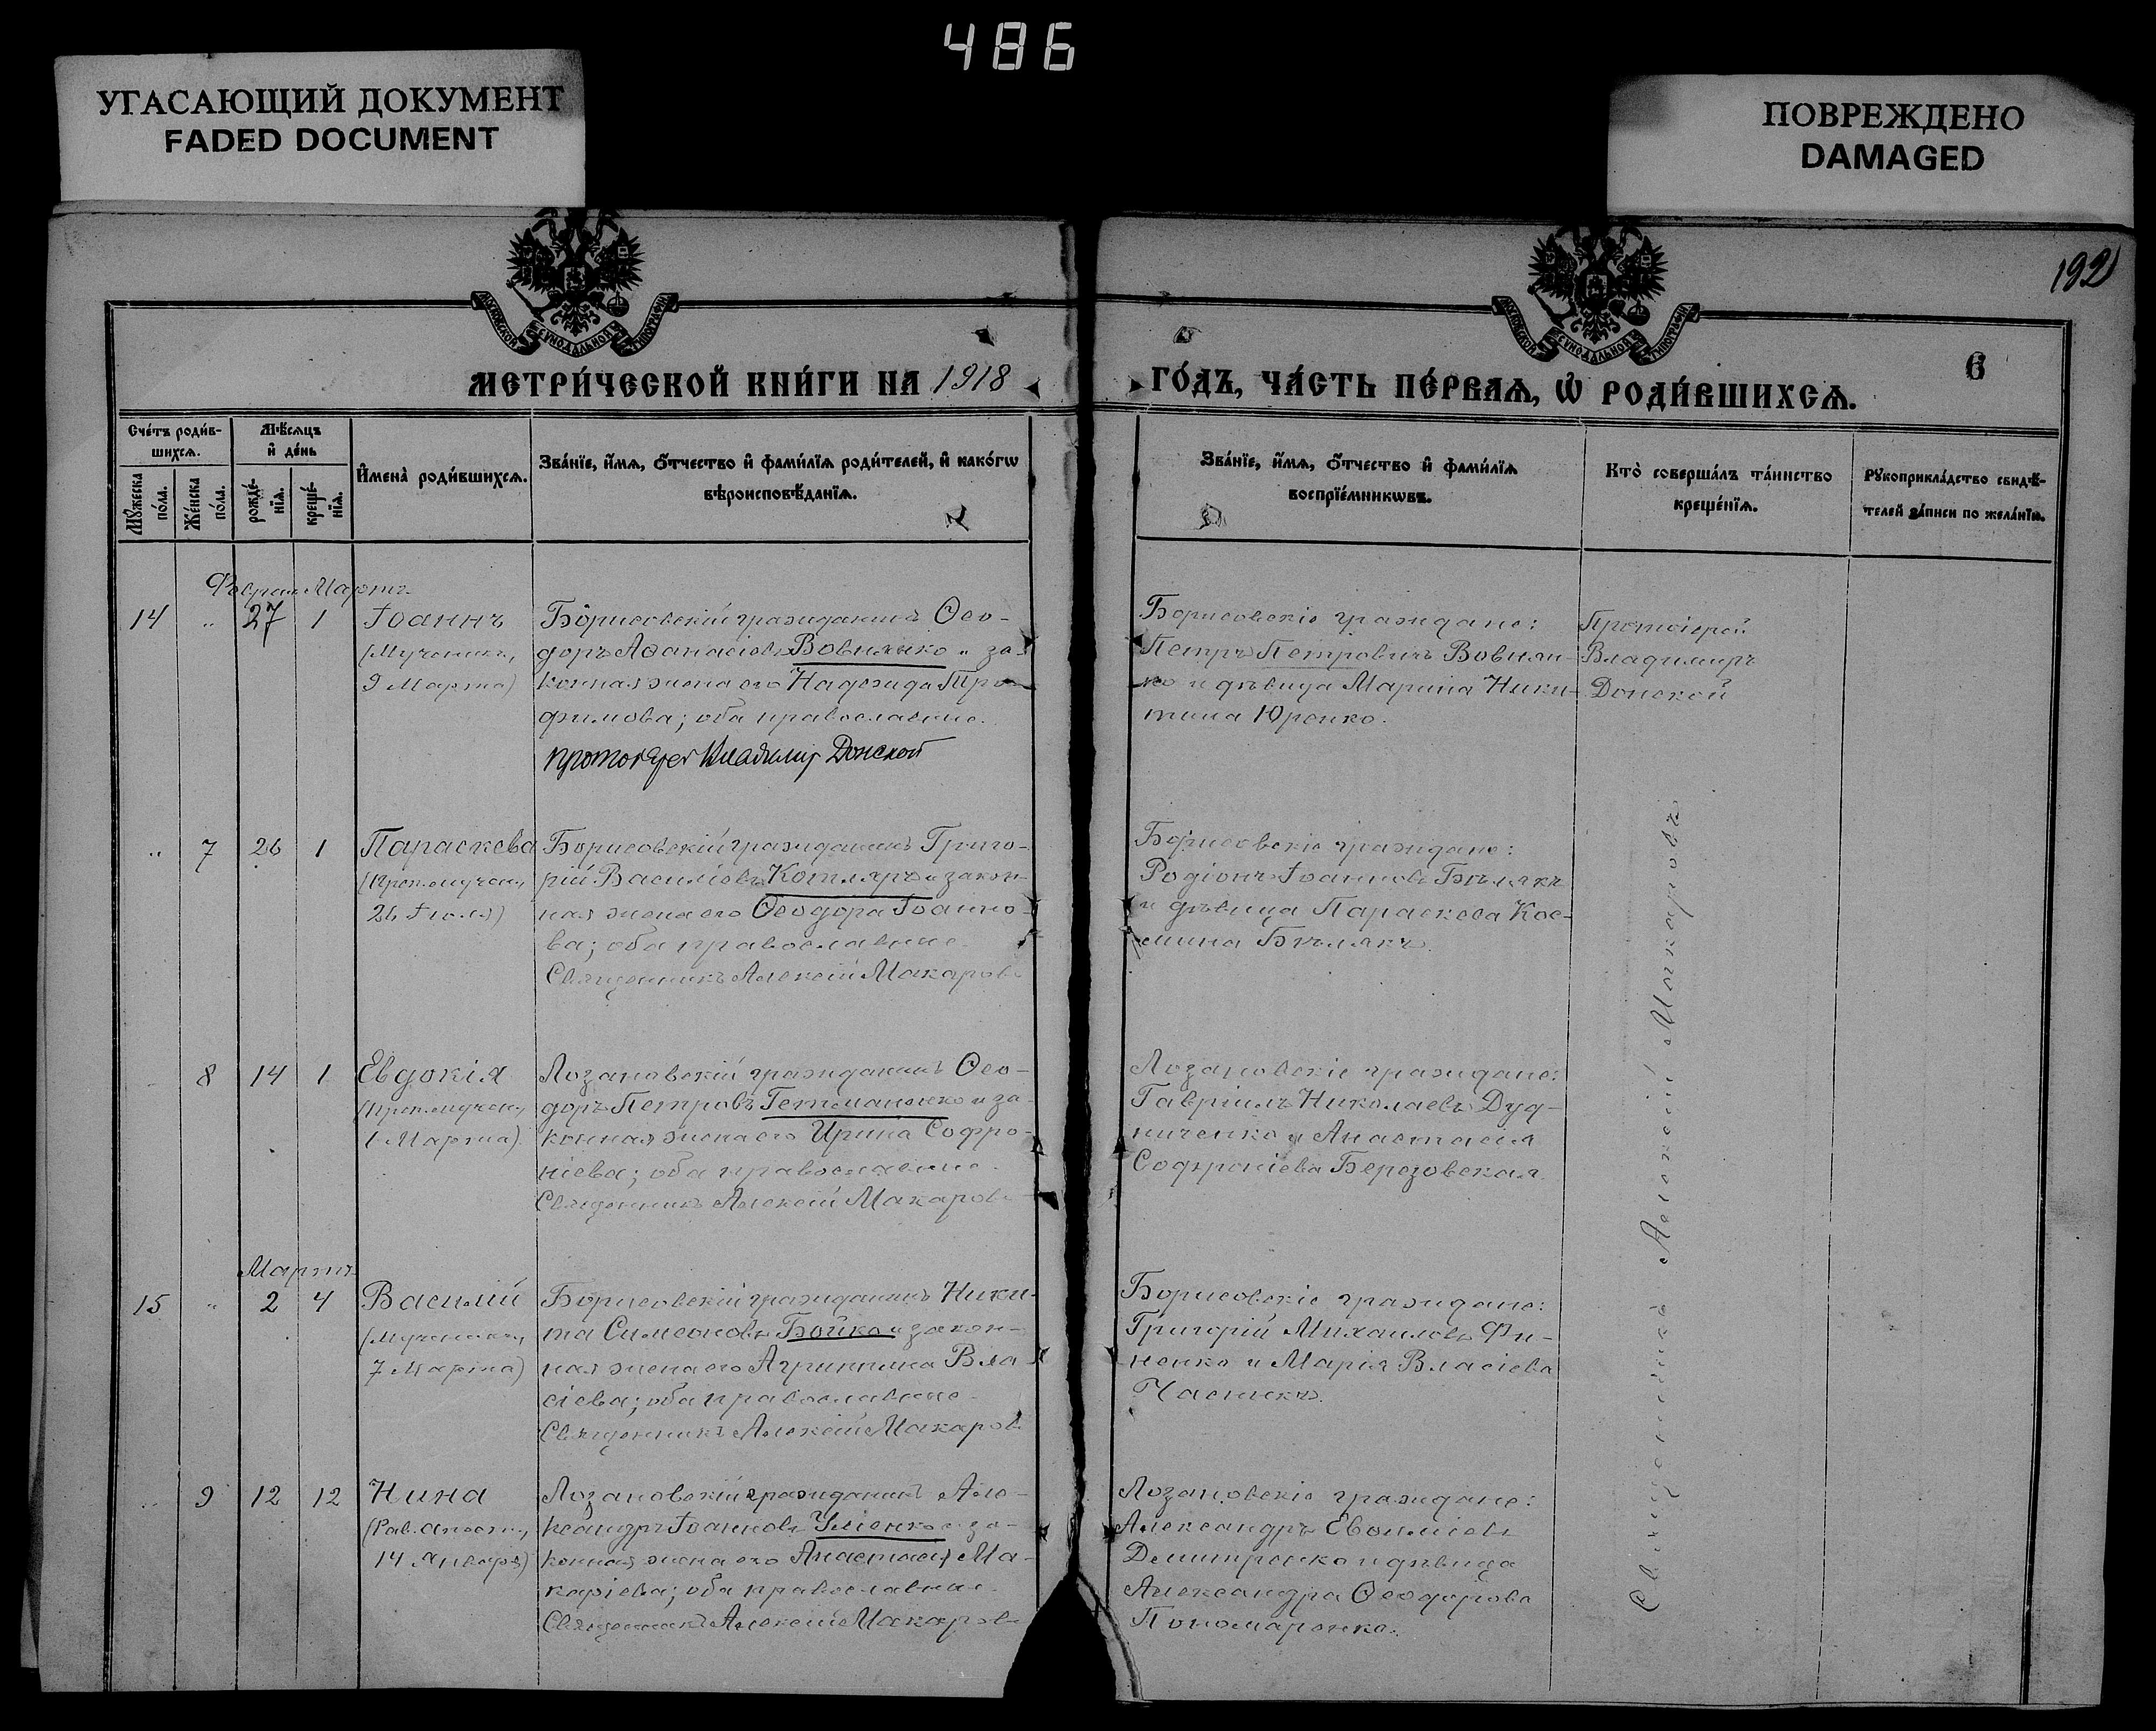 486
УГАСАЮЩИЙ ДОКУМЕНТ
FADED DOCUMENT
ПОВРЕЖДЕНО
DAMAGED
192
МОСКОВСКОЙ СѴНОДАЛЬНОЙ ТИПОГРАФІИ
МОСКОВСКОЙ СѴНОДАЛЬНОЙ ТИПОГРАФІИ
6
МЕТРИ́ЧЕСКОЙ КНИ́ГИ НА 1918
ГО́ДЪ, ЧА́СТЬ ПЕ́РВАѦ, Ѡ҆ РОДИ́ВШИХСѦ.
Сче́тъ роди́в-
шихсѧ.
Мѣ́сѧцъ
и҆ де́нь
Мꙋ́жеска
по́ла.
Же́нска
по́ла.
рожде́-
нїѧ.
креще́-
нїѧ.
И҆мена̀ роди́вшихсѧ.
Зва́нїе, и҆́мѧ, ѻ҆́тчество и҆ фами́лїѧ роди́телей, и҆ како́гѡ
вѣроисповѣ́данїѧ.
Зва́нїе, и҆́мѧ, ѻ҆́тчество и҆ фами́лїѧ
воспрїе́мникѡвъ.
Кто̀ соверша́лъ та́инство
креще́нїѧ.
Рꙋкоприкла́дство свидѣ́-
телей за́писи по жела́нїю.
Март
14 " 27 1 Іоаннъ
(Мученикъ,
9 Марта)
Борисовскій гражданинъ Ѳео-
доръ Аѳанасіевъ Вовнянко и за-
конная жена его Надежда Тро-
фимова; оба православные.
Протоіерей Владиміръ Донской
Борисовскіе граждане:
Петръ Петровичъ Вовнян-
ко и дѣвица Марина Ники-
тина Юренко.
Протоіерей
Владиміръ
Донской
" 7 26 1 Параскева
(Препмучен.,
26 Іюля)
Борисовскій гражданинъ Григо-
рій Василіевъ Котляръ и закон-
ная жена его Ѳеодора Іоанно-
ва; оба православные.
Священникъ Алексій Макаровъ
Борисовскіе граждане:
Родіонъ Іоанновъ Бѣлякъ
и дѣвица Параскева Кос-
мина Бѣлякъ.
8 14 1 Евдокія
(Препмучен.,
1 Марта)
Лозановскій гражданинъ Ѳео-
доръ Петровъ Гетманенко и за-
конная жена его Ирина Софро-
ніева; оба православные.
Священникъ Алексій Макаровъ
Лозановскіе граждане:
Гавріилъ Николаевъ Дуд-
ниченко и Анастасія
Софроніева Березовская.
Мартъ
15 " 2 4 Василій
(Мученикъ,
7 Марта)
Борисовскій гражданинъ Ники-
та Симеоновъ Бойко и закон-
ная жена его Агриппина Вла-
сіева; оба православные.
Священникъ Алексій Макаровъ
Борисовскіе граждане:
Григорій Михаиловъ Фи-
ненко и Марія Власіева
Частикъ.
" 9 12 12 Нина
(Рав. апост.,
14 Января)
Лозановскій гражданинъ Але-
ксандръ Іоанновъ и за-
конная жена его Анастасія Ма-
каріева; оба православные.
Священникъ Алексій Макаровъ
Лозановскіе граждане:
Александръ Евѳиміевъ
Димитренко и дѣвица
Александра Ѳеодорова
Пономаренко.
Священникъ Алексій Макаровъ